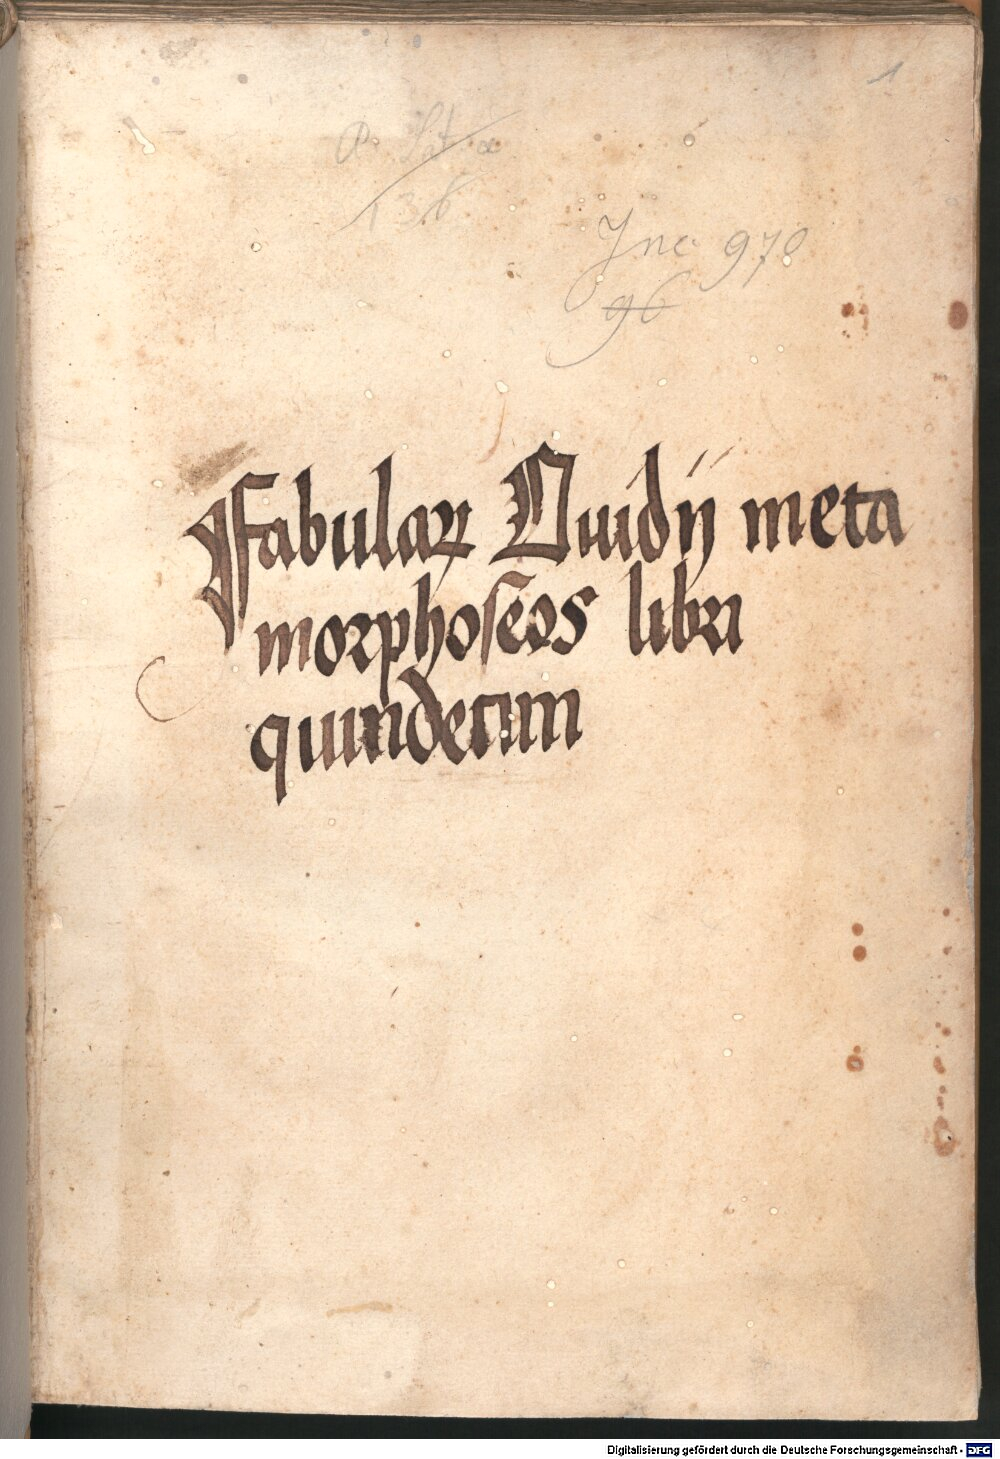 1
P. Lat. α
136
Inc 970
96
Fabulaꝝ Ouidij meta
morphoseos libri
quindecim
Digitalisierung gefördert durch die Deutsche Forschungsgemeinschaft - DFG